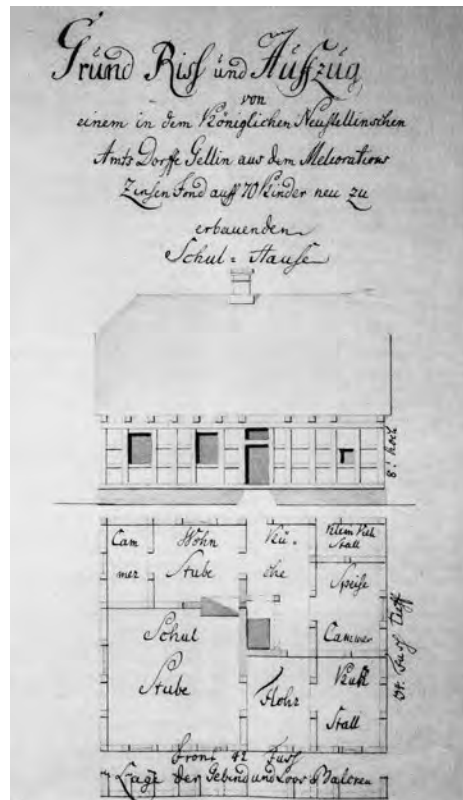 Grund Riss und Auffzug
von
einem in dem Königlichen Neustettinschen
Amts Dorffe Gellin aus dem Meliorations
Zinsen Fond auff 70 Kinder neu zu
erbauenden
Schul = Hause
8! hoch
Cam
mer
Wohn
Stube
Kü =
che
Klein Vieh
Stall
Speise
Cammer
Schul
Stube
Flohr
Kuh
Stall
Fuss tieff
Front 42 Fuss
Lage der Gebind und Loos Balcken